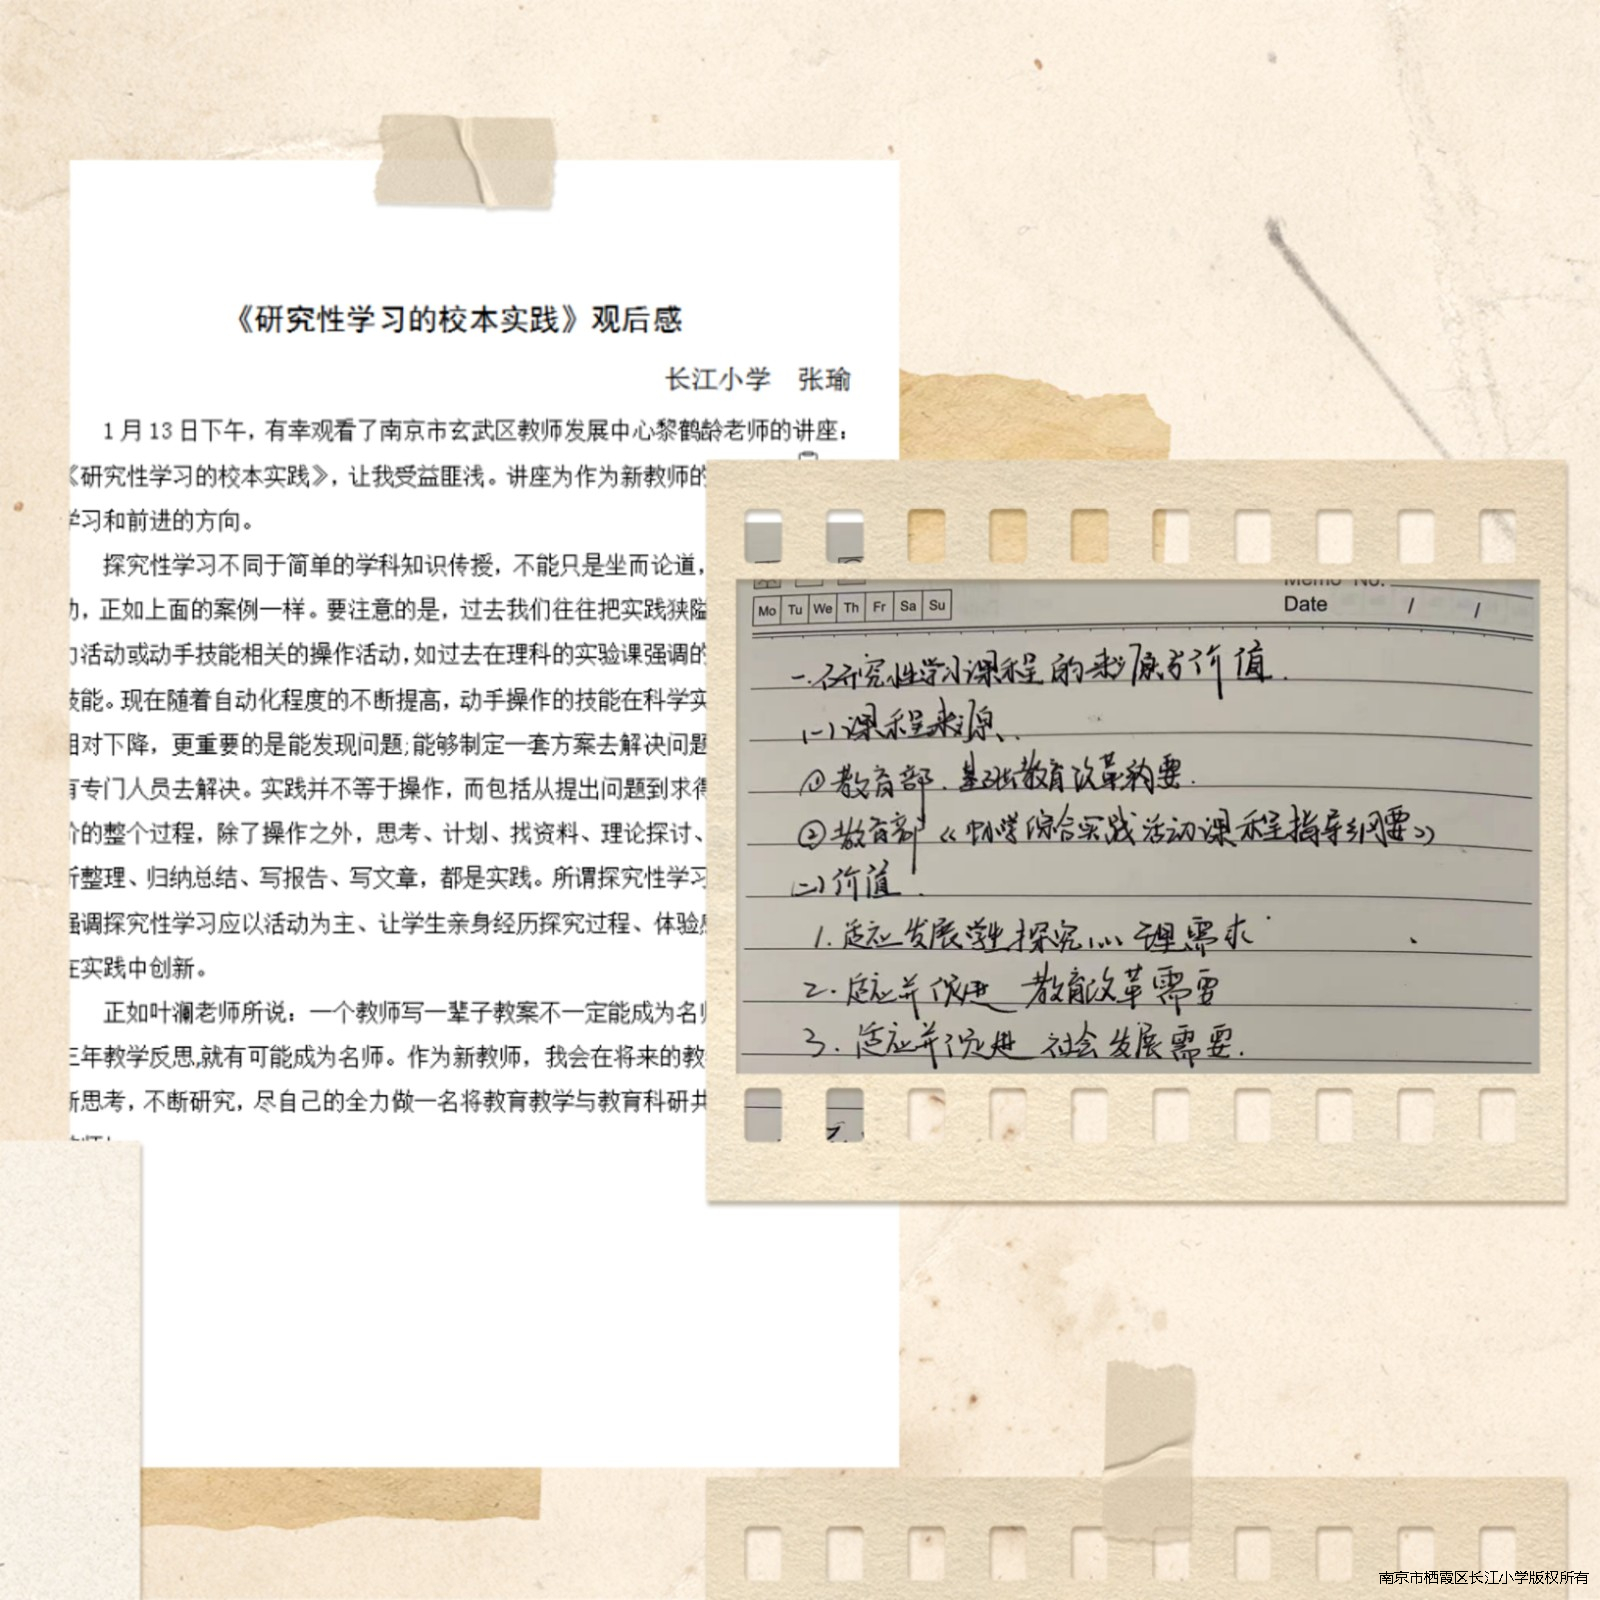 《研究性学习的校本实践》观后感
长江小学 张瑜
1月13日下午，有幸观看了南京市玄武区教师发展中心黎鹤龄老师的讲座：
《研究性学习的校本实践》，让我受益匪浅。讲座为作为新教师的
学习和前进的方向。
探究性学习不同于简单的学科知识传授，不能只是坐而论道，
动，正如上面的案例一样。要注意的是，过去我们往往把实践狭隘
活动或动手技能相关的操作活动，如过去在理科的实验课强调的
技能。现在随着自动化程度的不断提高，动手操作的技能在科学实
相对下降，更重要的是能发现问题;能够制定一套方案去解决问题
有专门人员去解决。实践并不等于操作，而包括从提出问题到求得
价的整个过程，除了操作之外，思考、计划、找资料、理论探讨、
整理、归纳总结、写报告、写文章，都是实践。所谓探究性学习
强调探究性学习应以活动为主、让学生亲身经历探究过程、体验
在实践中创新。
正如叶澜老师所说：一个教师写一辈子教案不一定能成为名师
三年教学反思,就有可能成为名师。作为新教师，我会在将来的教
新思考，不断研究，尽自己的全力做一名将教育教学与教育科研共
Memo No.
Mo Tu We Th Fr Sa Su
Date / /
一.研究性学习课程的来源与价值.
(一)课程来源.
①教育部.基础教育改革纲要.
②教育部《中小学综合实践活动课程指导纲要》
(二)价值.
1.适应发展学生探究心理需求
2.适应并促进 教育改革需要
3.适应并促进 社会发展需要.
南京市栖霞区长江小学版权所有